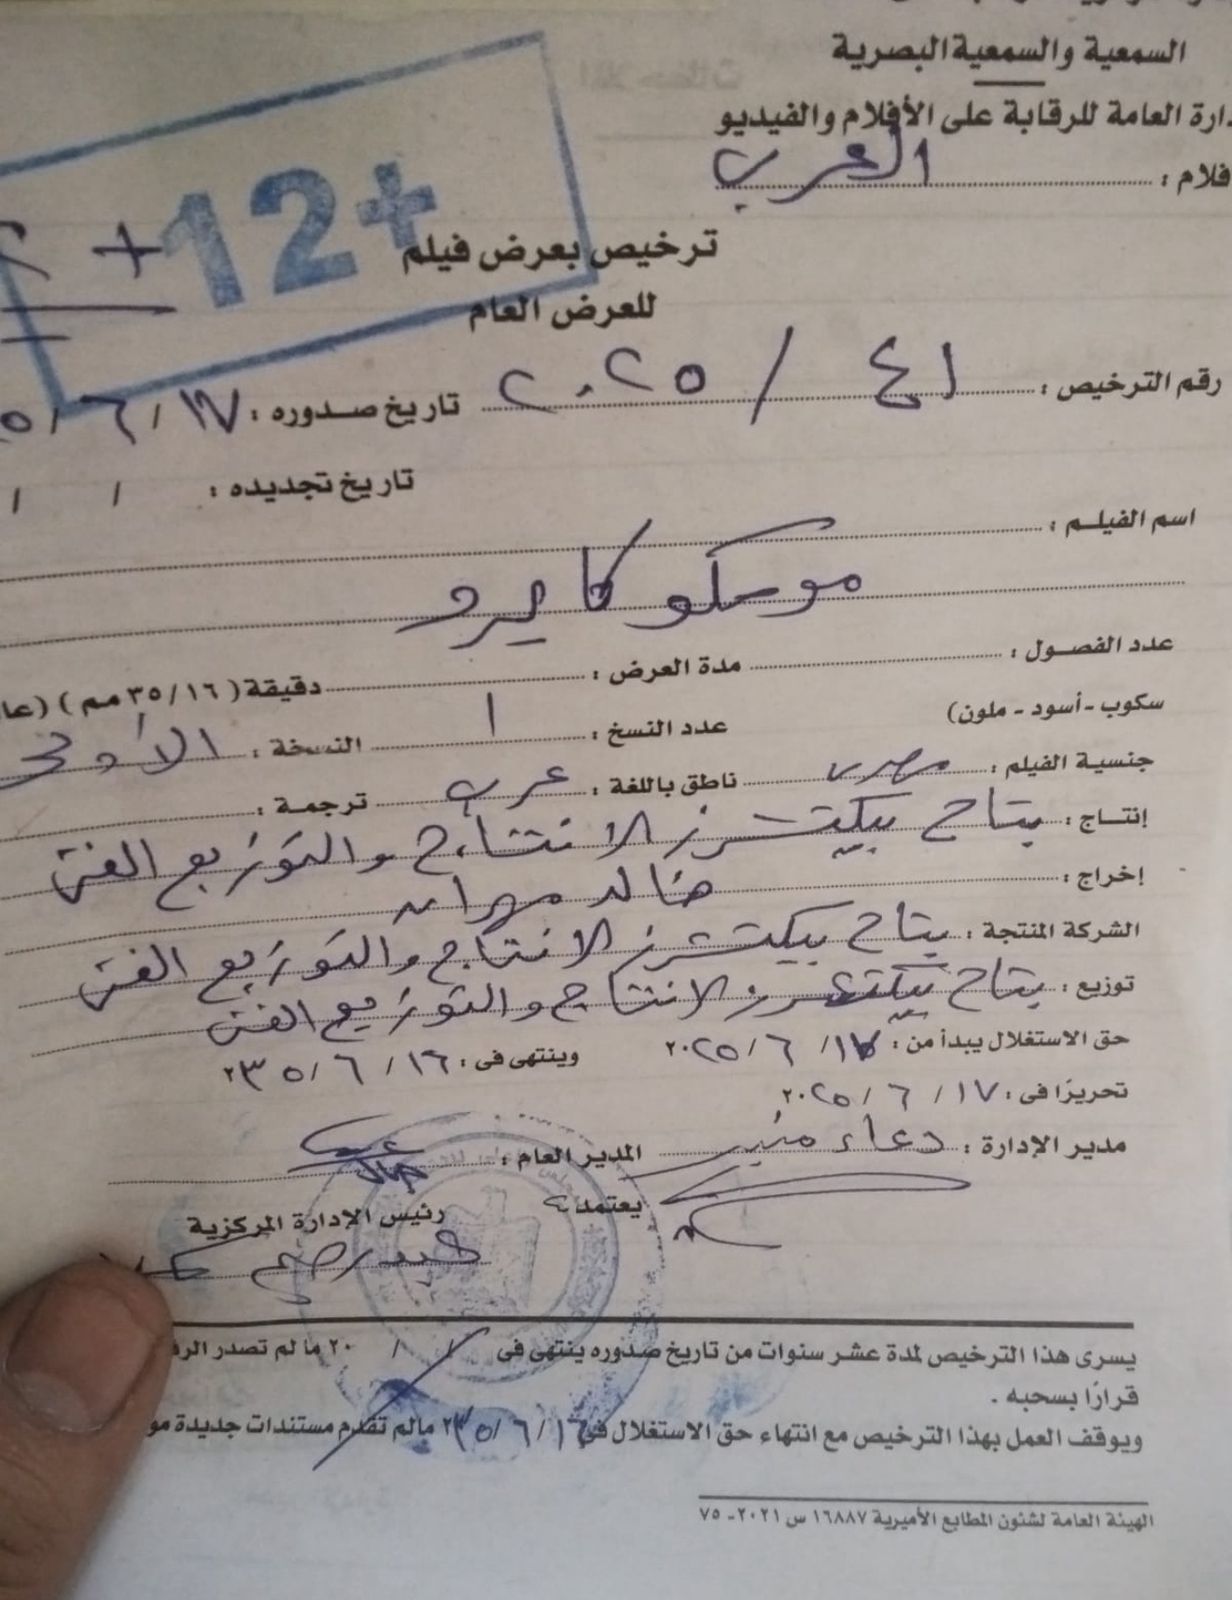 السمعية والسمعية البصرية
دارة العامة للرقابة على الأفلام والفيديو
فلام : العربى
12+
ترخيص بعرض فيلم
للعرض العام
رقم الترخيص : ٤١ / ٢٠٢٥ تاريخ صدوره : ١٧ / ٦ / ٥
تاريخ تجديده : / /
اسم الفيلم :
موسكو كايرو
عدد الفصول : مدة العرض : دقيقة (٣٥/١٦ مم) (عا
سكوب - أسود - ملون) عدد النسخ : ١ النسخة : الأولى
جنسية الفيلم : مصرى ناطق باللغة : عربى ترجمة :
إنتاج : يتاح بيكتشرز للانتاج والتوزيع الفنى
إخراج : خالد مهران
الشركة المنتجة : يتاح بيكتشرز للانتاج والتوزيع الفنى
توزيع : يتاح بيكتشرز للانتاج والتوزيع الفنى
حق الاستغلال يبدأ من : ١٧ / ٦ / ٢٠٢٥ وينتهى فى : ١٦ / ٦ / ٢٠٣٥
تحريرًا فى : ١٧ / ٦ / ٢٠٢٥
مدير الإدارة : دعاء منير المدير العام :
يعتمد
رئيس الإدارة المركزية
يسرى هذا الترخيص لمدة عشر سنوات من تاريخ صدوره ينتهى فى / / ٢٠ ما لم تصدر الرق
قرارًا بسحبه .
ويوقف العمل بهذا الترخيص مع انتهاء حق الاستغلال فى ١٦ / ٦ / ٢٠٣٥ مالم تقدم مستندات جديدة مو
الهيئة العامة لشئون المطابع الأميرية ١٦٨٨٧ س ٢٠٢١ - ٧٥